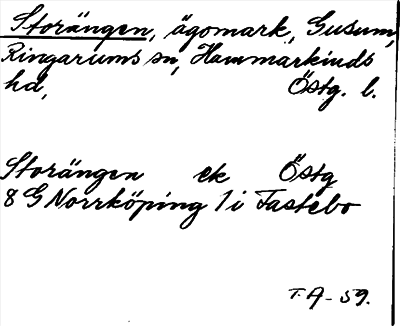 Storängen, ägomark, Gusum,
Ringarums sn, Hammarkinds
hd, Östg. l.
Storängen ek Östg
8 G Norrköping 1 i Fastebo
T.A-59.